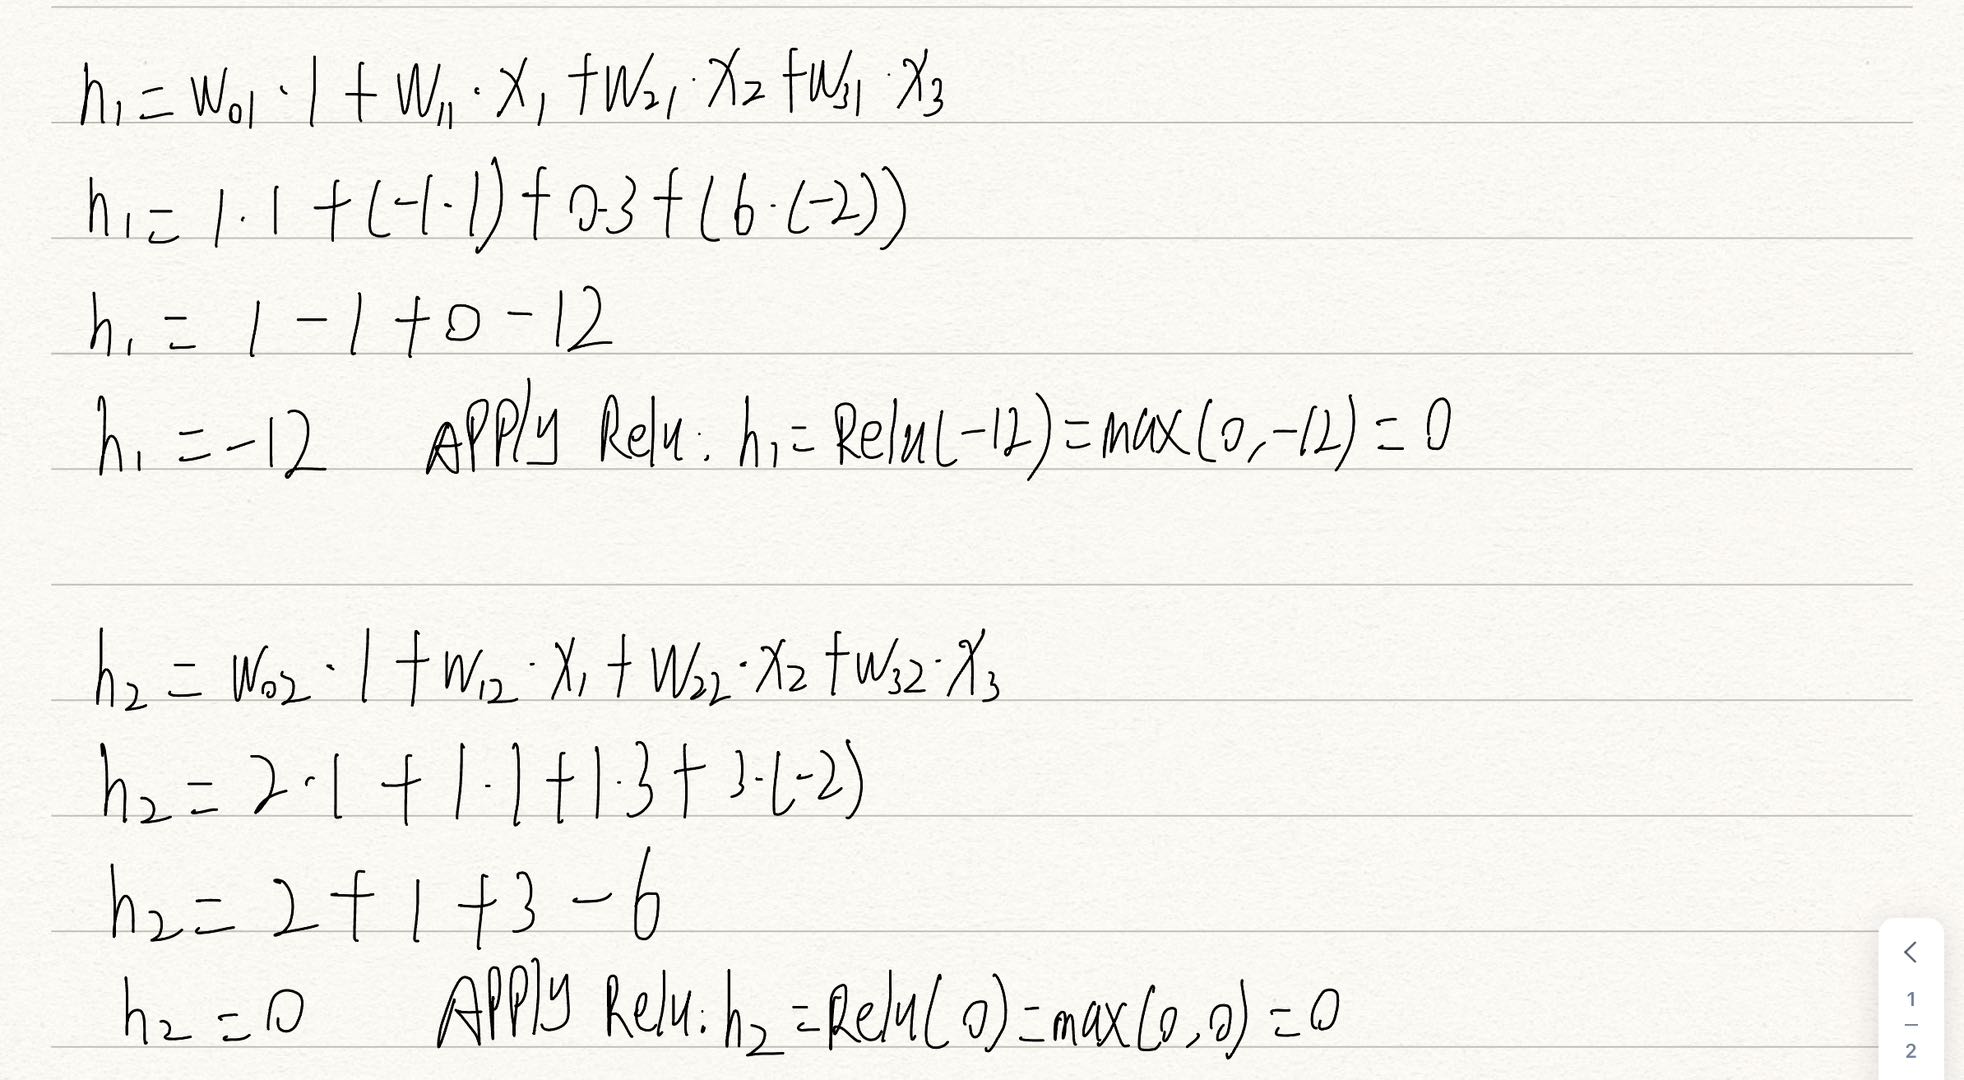 h₁ = W₀₁ · 1 + W₁₁ · X₁ + W₂₁ · X₂ + W₃₁ · X₃
h₁ = 1 · 1 + (-1 · 1) + 0·3 + (6 · (-2))
h₁ = 1 - 1 + 0 - 12
h₁ = -12 APPly Relu: h₁ = Relu(-12) = max(0, -12) = 0
h₂ = W₀₂ · 1 + W₁₂ · X₁ + W₂₂ · X₂ + W₃₂ · X₃
h₂ = 2 · 1 + 1 · 1 + 1 · 3 + 3 · (-2)
h₂ = 2 + 1 + 3 - 6
h₂ = 0 APPly Relu: h₂ = Relu(0) = max(0, 0) = 0
1
2